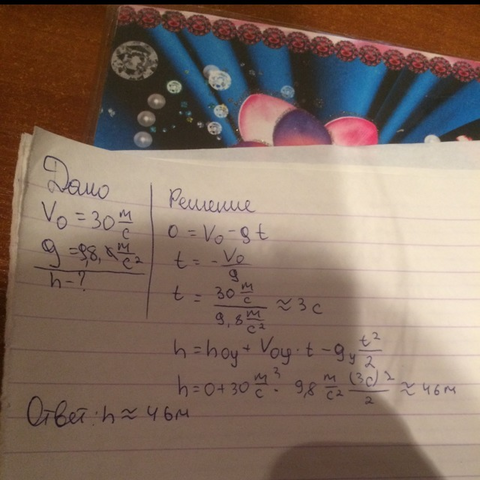 Дано
V₀ = 30 м/с
g = 9,8 м/с²
h - ?
Решение
0 = V₀ - gt
t = -V₀/g
t = 30 м/с / 9,8 м/с² ≈ 3 с
h = h₀y + V₀y · t - gy t²/2
h = 0 + 30 м/с · 9,8 м/с² (3с)²/2 ≈ 46 м
Ответ: h ≈ 46м